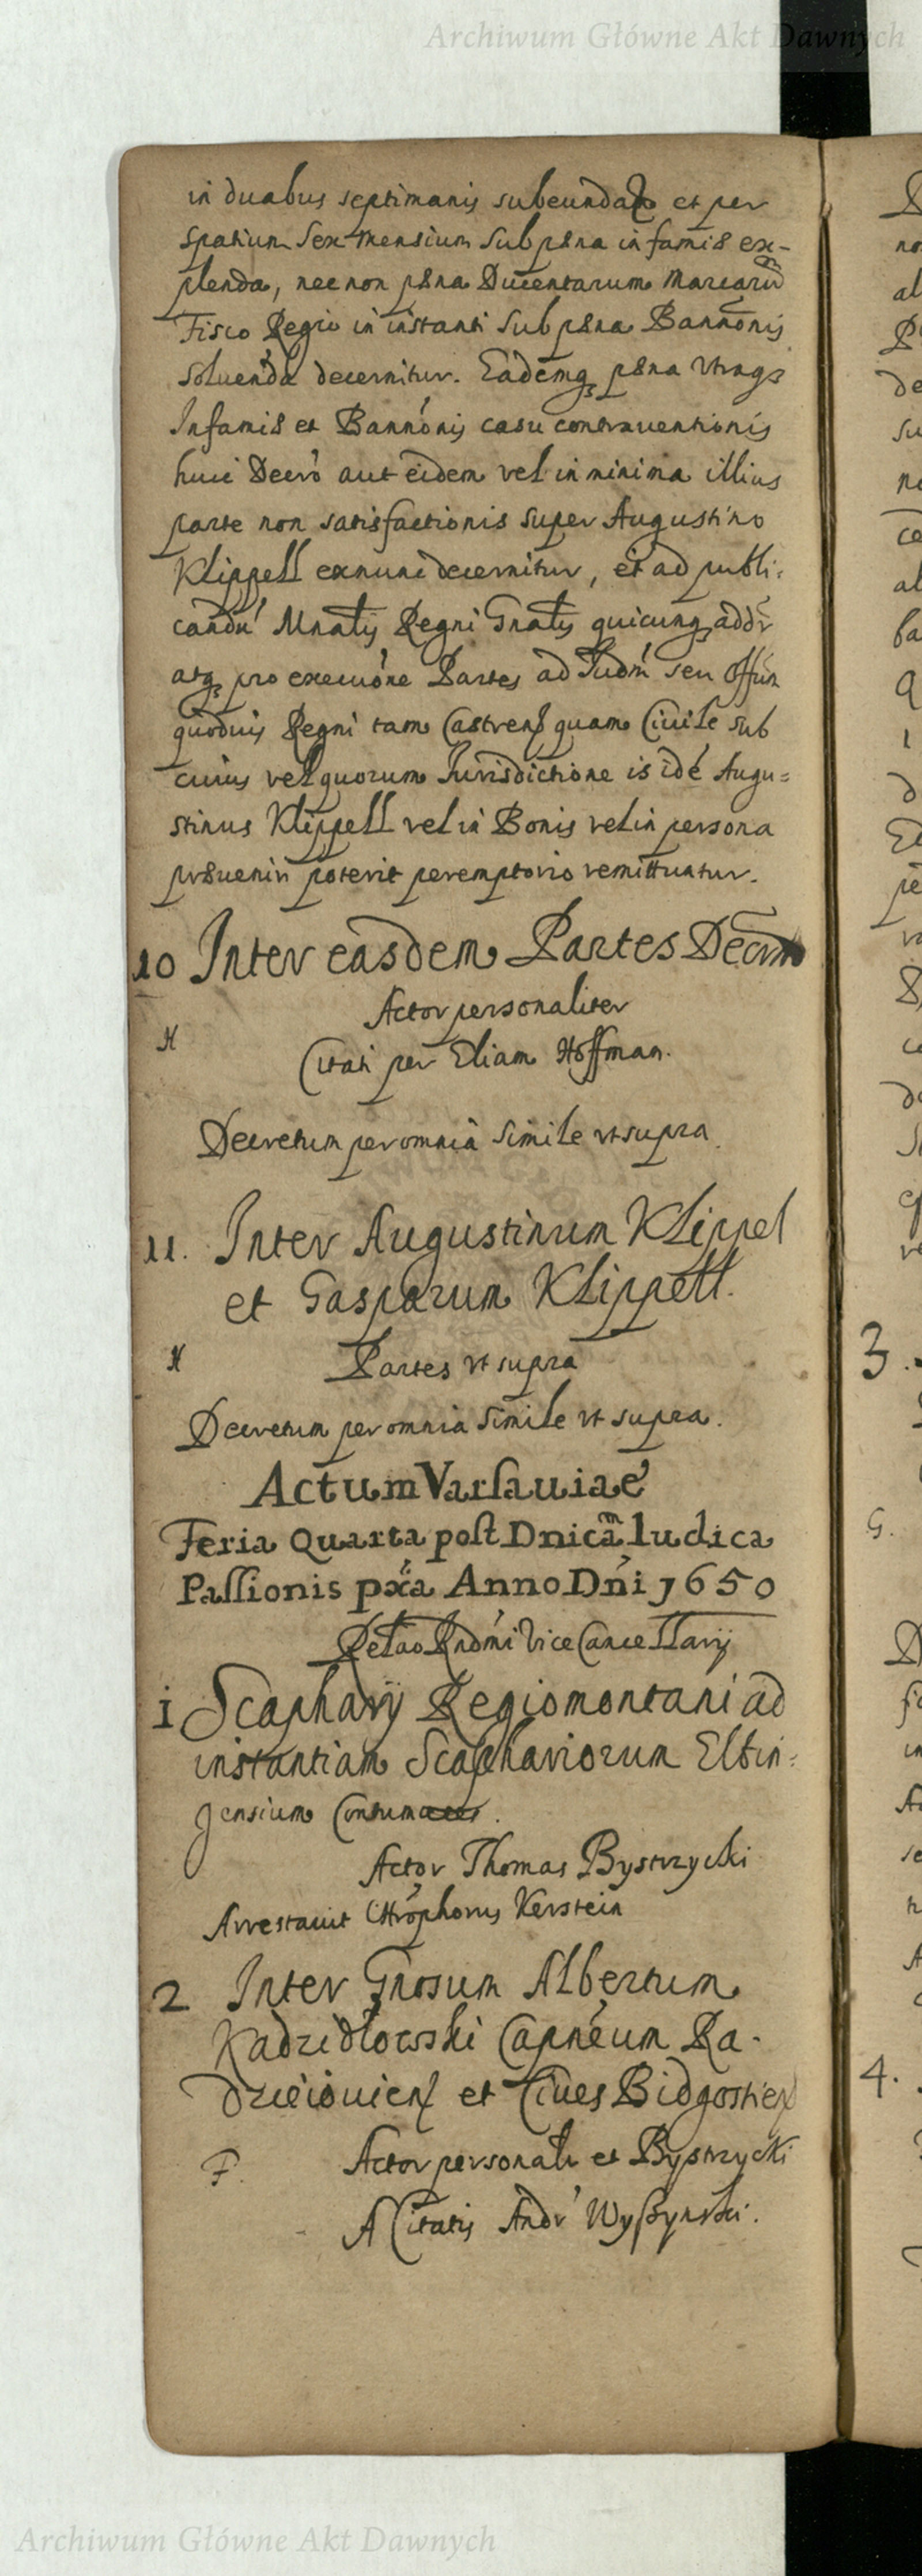 Archiwum Główne Akt Dawnych
in duabus septimanis subeunda et per
spatium Sex Mensium sub pæna infamiæ ex-
plenda, nec non pæna Ducentarum Marcarũ
Fisco Regio in instanti sub pæna Bannonis
soluenda decernitur. Eademq pæna vtraqz
Infamiæ et Bannónis casu contrauentionis
huic Decrò aut eidem vel in minima illius
parte non satisfactionis super Augustino
Klippell exnunc decernitur, et ad publi:
candũ Mnalis Regni Gnalis quicunq addr
atq pro execuóne Partes ad Iudm seu Offm
quoduis Regni tam Castrens quam Ciuile sub
cuius vel quorum Jurisdictione is idé Augu=
stinus Klippell vel in Bonis vel in persona
præueniri poterit peremptorio remittuntur.
10 Inter easdem Partes Decrm
Actor personaliter
H
Citati per Eliam Hoffman.
Decretum per omnia simile vt supra.
11. Inter Augustinum Klippel
et Gasparum Klippell.
H Partes vt supra
Decretum per omnia simile vt supra.
Actum Varsauiae
Feria Quarta post Dnicã Iudica
Passionis pxa Anno Dni 1650
Relao Rndmi Vice Cancellarij
1 Scapharij Regiomontani ad
instantiam Scaphariorum Elbin:
gensium
Actor Thomas Bystrzycki
Arrestauit Chrophorus Kerstein
2 Inter Gnosum Albertum
Kadzidlowski Capneum Ra-
dzieiouiens et Ciues Bidgostien
F. Actor personali et Bystrzycki
A Citatis Andr Wyszynski.
Archiwum Główne Akt Dawnych